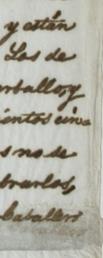 y están
Los de
arballo, y
ientos cinco
s no de
brarlos,
Caballero